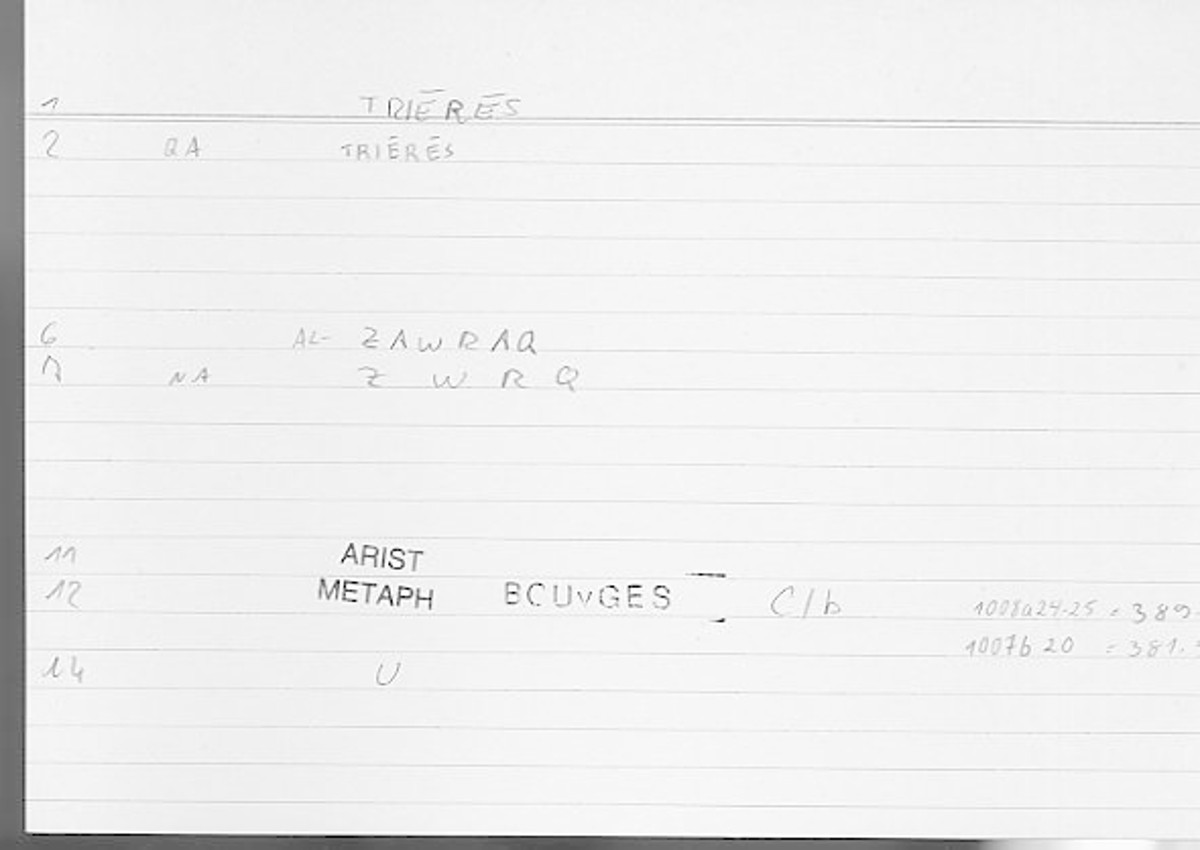 1 TRIĒRĒS
2 QA TRIĒRĒS
6 AL- ZAWRAQ
7 NA Z W R Q
11 ARIST
12 METAPH BOUYGES C/b 1008a24-25 = 389.
1007b 20 = 381.
14 U